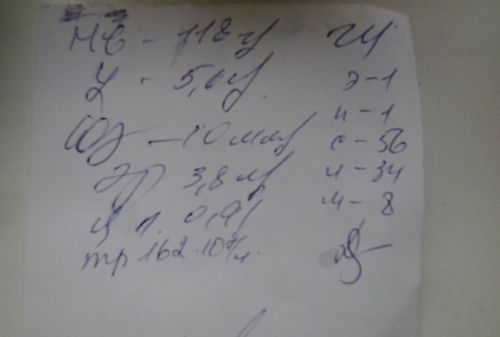 Hb - 118 г/
L - 5,0 г/
СОЭ - 10 мм/
Эр 3,8 г/
ц п. 0,91
тр 162·10⁹/л.
э - 1
п - 1
с - 56
л - 34
м - 8